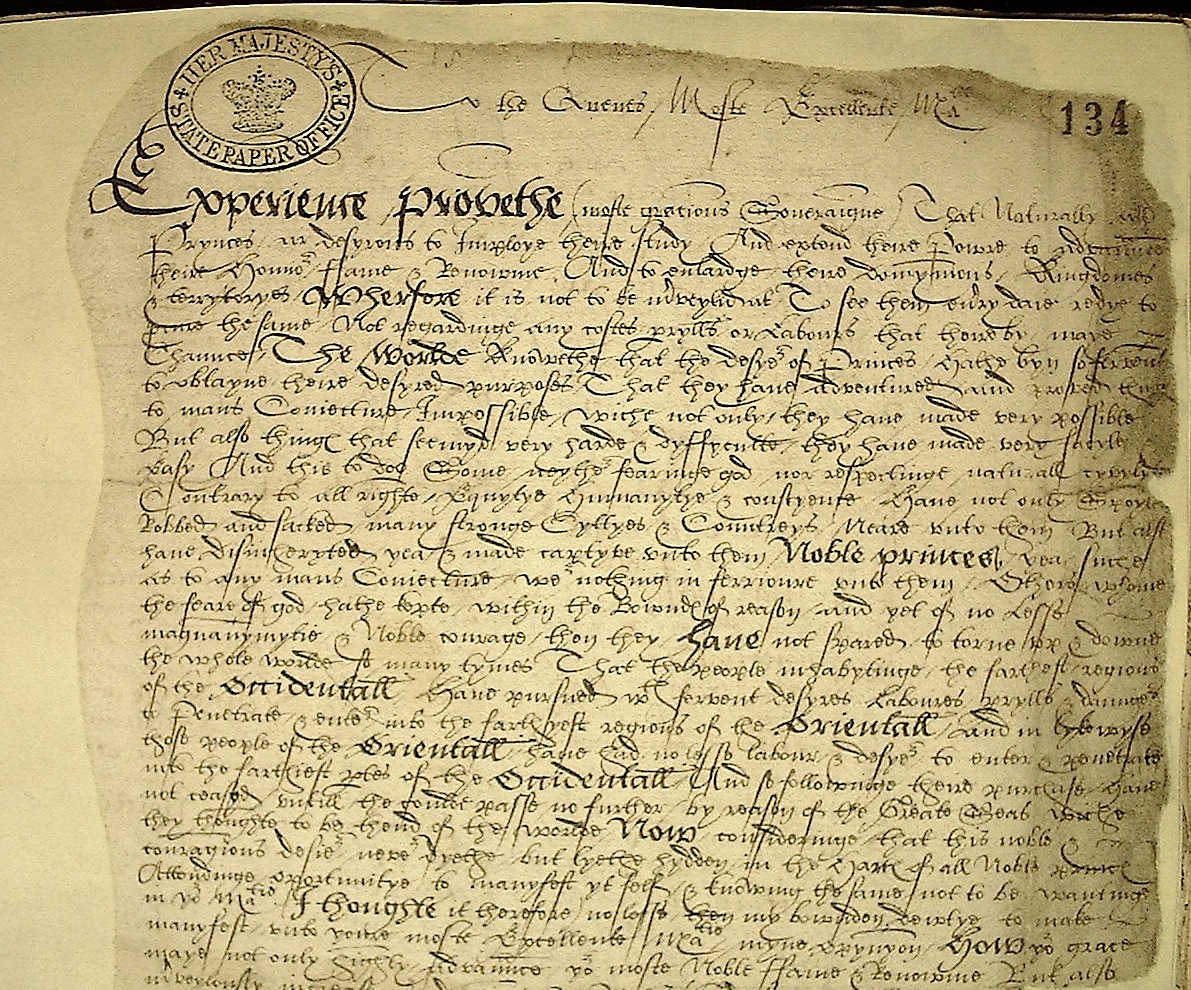 HER MAJESTY'S STATE PAPER OFFICE
134
To the Quenes / Moste Excellente / Ma^tie
Experience / provethe / moste gratious Soueraigne / That Naturally
Prynces / ar desyrous to Imploye theire study And extend theire Powre to advaunce
theire Honno^r / ffame & Renowme / And to enlardge / theire domynions / Kingdomes
& terrytoryes / Wherfore it is not to be to see them euery daie redye to
the same / Not regardinge any costes prylls or Labours that thereby maye
Chaunce / The Worlde Knowethe / that the desye^r of Princes / hathe byn so fervent
to obtayne theire desyred purposes / That they haue adventured and proved
to mans Coniecture / Impossible / wiche not only / they haue made very possible
But also thinges that seemyd very harde & dyffyculte / they haue made very facyle
easy / And this to doo / Some / neythe^r fearinge god / nor respectinge naturall
Contrary to all righte / Equytye Humanytye & consciense / Haue not only Spoyled
Robbed and sacked many stronge Cyttyes & Countreys / Neare vnto them But also
haue disinheryted yea & made captyve vnto them / Noble princes / yea / suche
as to any mans Coniecture / we^r nothing in ferrioure vnto them / Others whome
the feare of god / hathe kepte / within the Bowndes of reason / and yet of no Lesse
magnanymytie & Noble courage / then they / haue not spared to torne vp & downe
the whole worlde so many tymes / That the people inhabytinge / the farthest regions
of the Occidentall / Haue pursued w^th fervent desyres Laboures prylls & daungers
to Penetrate & ente^r into the farthyest regions of the Orientall / and in lykewyse
those people of the Orientall / haue had no lesse labour & desye^r to enter & penetrate
into the farthiest ptes of the Occidentall / And so followinge theire purchase / haue
not ceased / vntill the coulde passe no further / by reason of the Greate Seas wiche
they thoughte to be thend of the worlde / Now consideringe that this noble &
couragious desie^r neve^r dyethe / but lyethe hydden in the Hartes of all Noble princes
Attendinge oportunitye to manyfest yt self & knowing the same not to be wantinge
in yo^r Ma^tie / I thoughte it therefore / no lesse then my bownden dewtye to make
manyfest / vnto youre moste Excellente / Ma^tie / myne opynyon / How yo^r grace
maye not only highly advaunce yo^r moste Noble ffame & Renowme But also